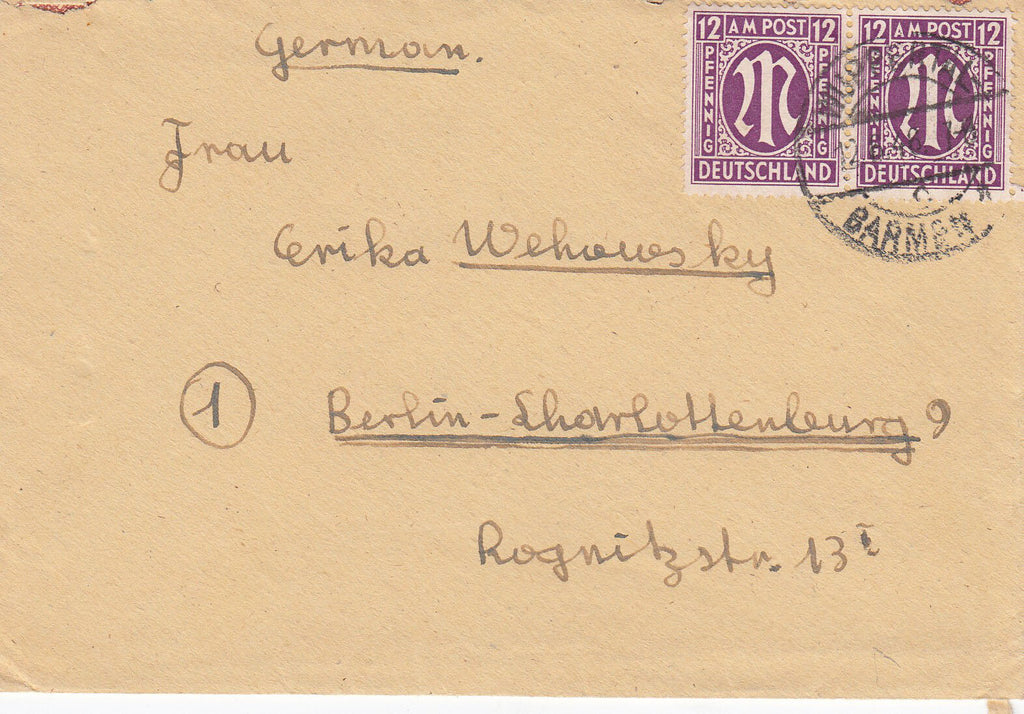 12 AM POST 12
PFENNIG
PFENNIG
DEUTSCHLAND
12 AM POST 12
PFENNIG
PFENNIG
DEUTSCHLAND
WUPPERTAL
BARMEN
German.
Frau
Erika Wehowsky
1 Berlin-Charlottenburg 9
Rognitzstr. 13 I